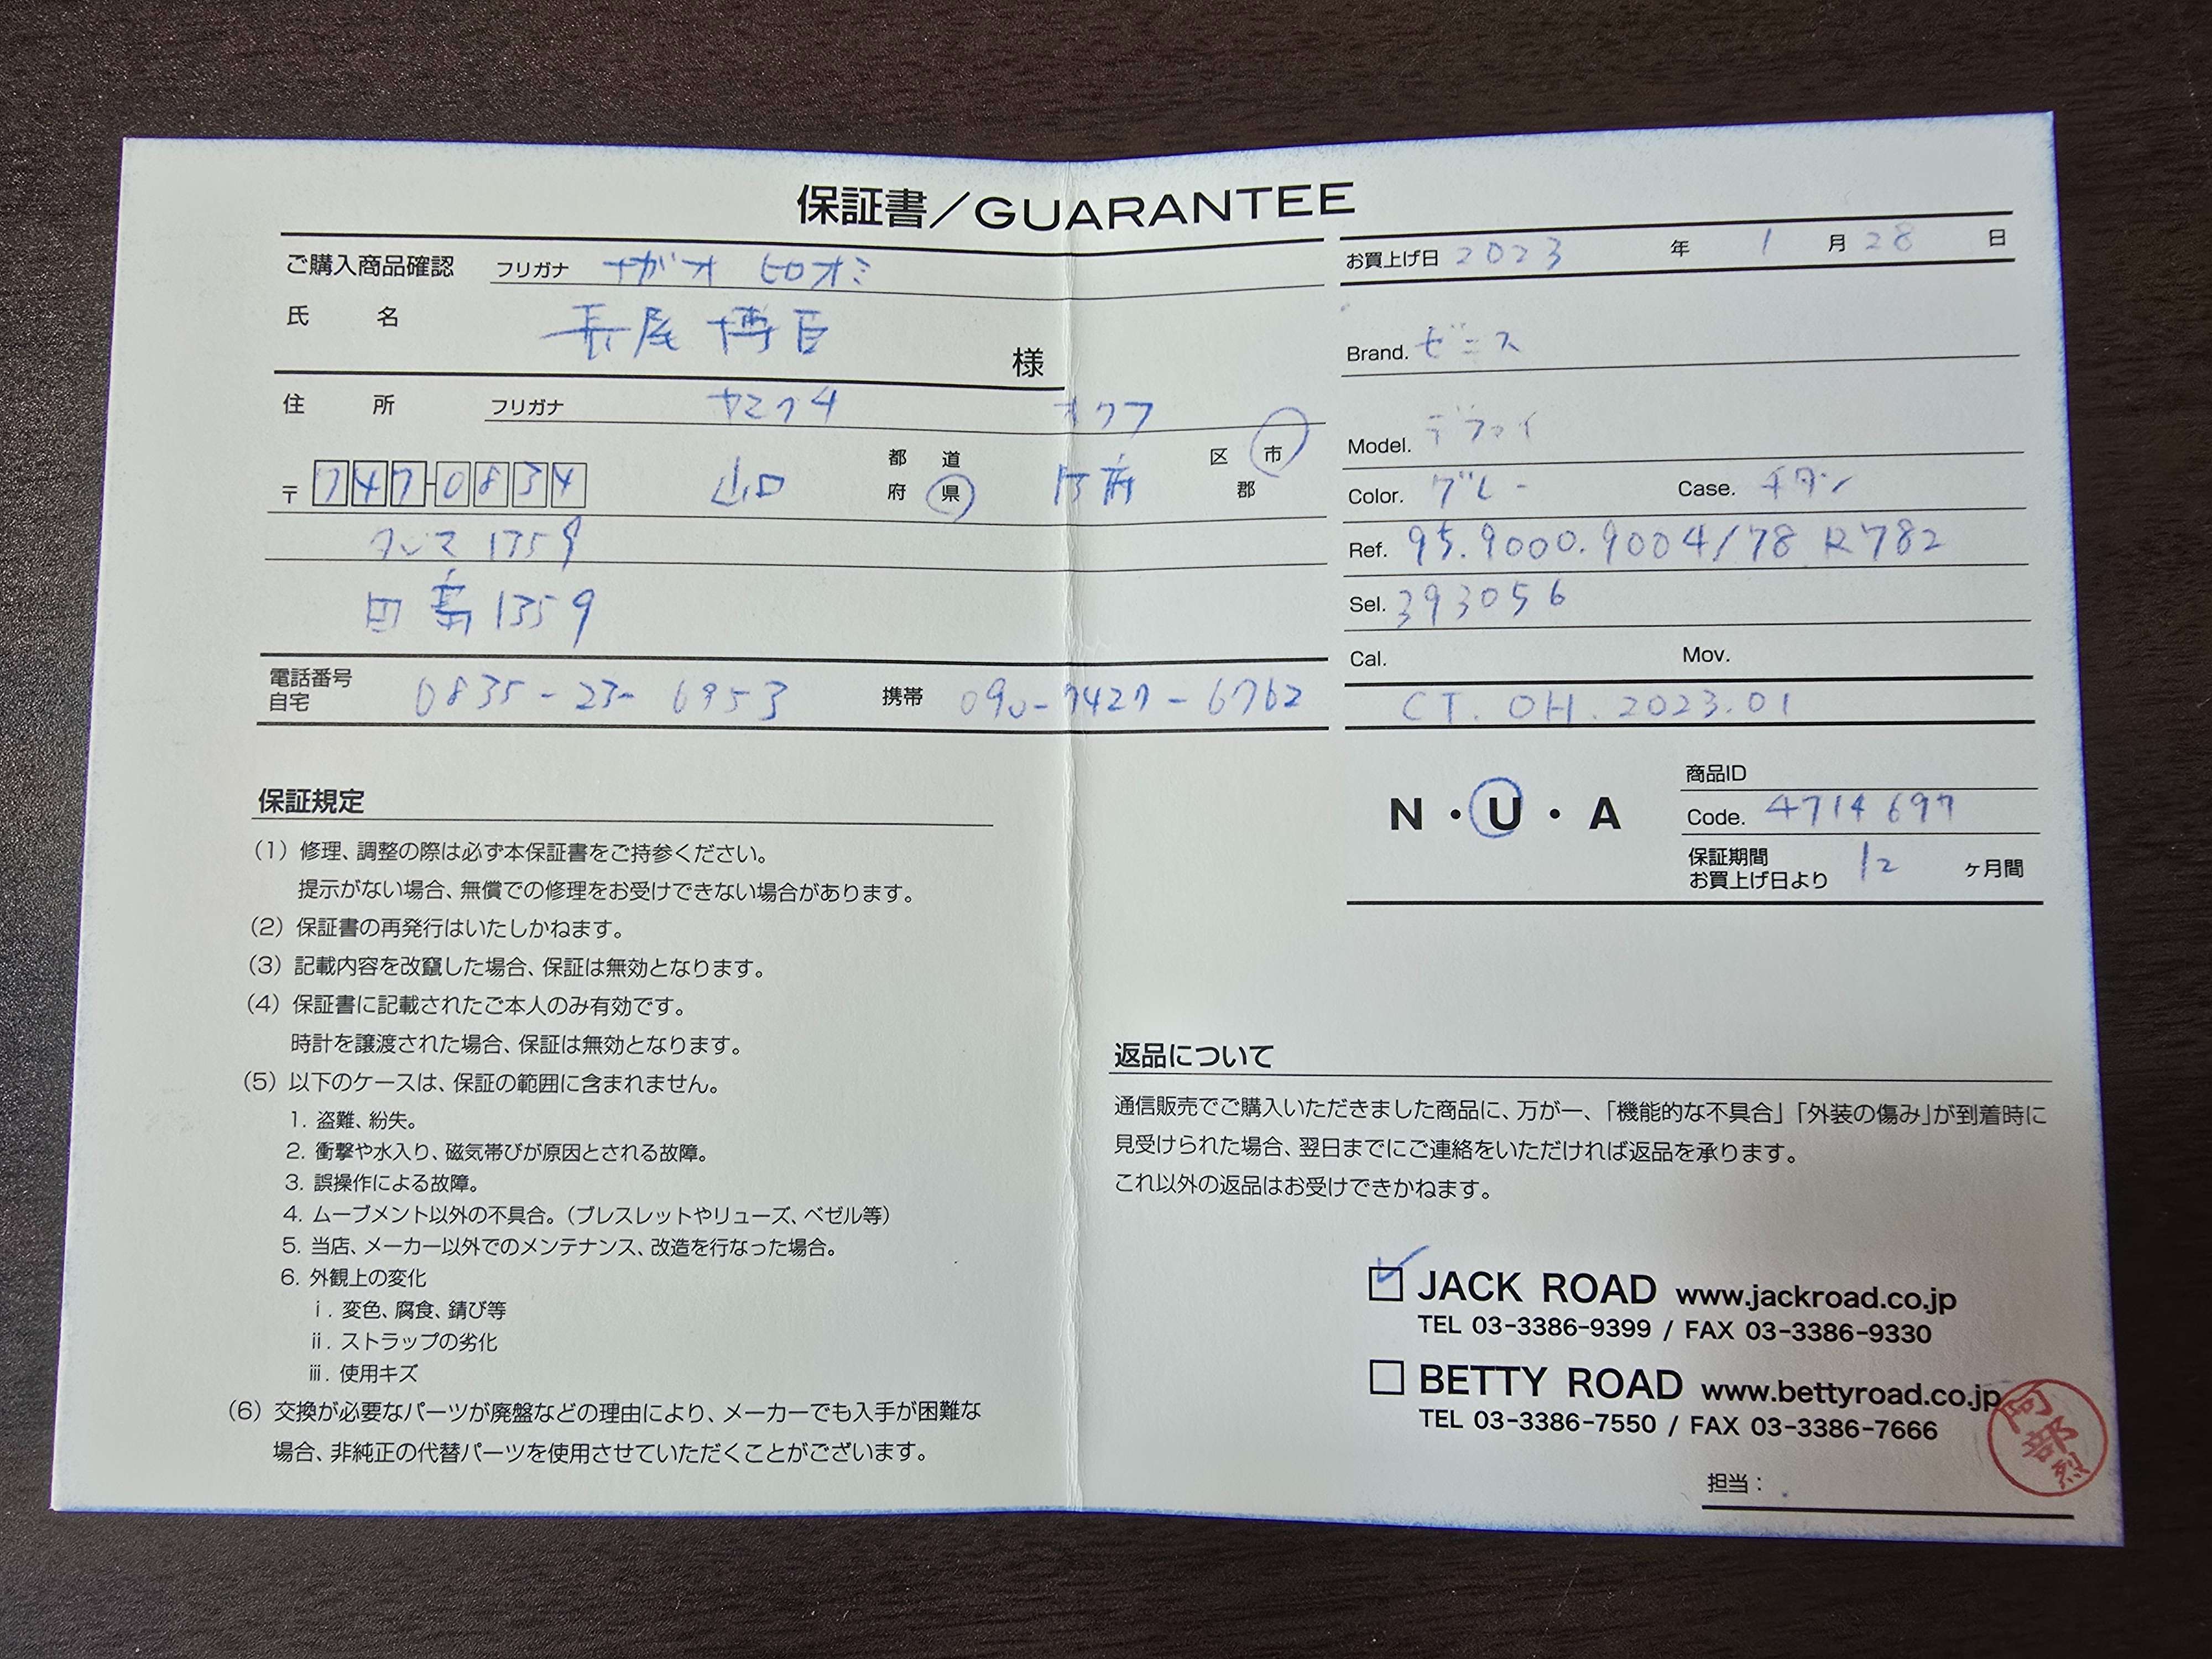 保証書／GUARANTEE
ご購入商品確認 フリガナ ナガオ ヒロオミ
氏 名 長尾 博臣 様
住 所 フリガナ ヤマグチ ホウフ
〒 747-0834 山口 都道府県 防府 区市郡
タジマ 1359
田島 1359
電話番号 自宅 0835-23-6953 携帯 090-7427-6762
お買上げ日 2023 年 1 月 28 日
Brand. ゼニス
Model. デファイ
Color. グレー Case. チタン
Ref. 95.9000.9004/78 R782
Sel. 393056
Cal. Mov.
CT. OH. 2023.01
N・U・A
商品ID
Code. 4714697
保証期間
お買上げ日より 12 ヶ月間
保証規定
(1) 修理、調整の際は必ず本保証書をご持参ください。
提示がない場合、無償での修理をお受けできない場合があります。
(2) 保証書の再発行はいたしかねます。
(3) 記載内容を改竄した場合、保証は無効となります。
(4) 保証書に記載されたご本人のみ有効です。
時計を譲渡された場合、保証は無効となります。
(5) 以下のケースは、保証の範囲に含まれません。
1. 盗難、紛失。
2. 衝撃や水入り、磁気帯びが原因とされる故障。
3. 誤操作による故障。
4. ムーブメント以外の不具合。（ブレスレットやリューズ、ベゼル等）
5. 当店、メーカー以外でのメンテナンス、改造を行なった場合。
6. 外観上の変化
ⅰ. 変色、腐食、錆び等
ⅱ. ストラップの劣化
ⅲ. 使用キズ
(6) 交換が必要なパーツが廃盤などの理由により、メーカーでも入手が困難な
場合、非純正の代替パーツを使用させていただくことがございます。
返品について
通信販売でご購入いただきました商品に、万が一、「機能的な不具合」「外装の傷み」が到着時に
見受けられた場合、翌日までにご連絡をいただければ返品を承ります。
これ以外の返品はお受けできかねます。
JACK ROAD www.jackroad.co.jp
TEL 03-3386-9399 / FAX 03-3386-9330
BETTY ROAD www.bettyroad.co.jp
TEL 03-3386-7550 / FAX 03-3386-7666
担当：
阿部烈